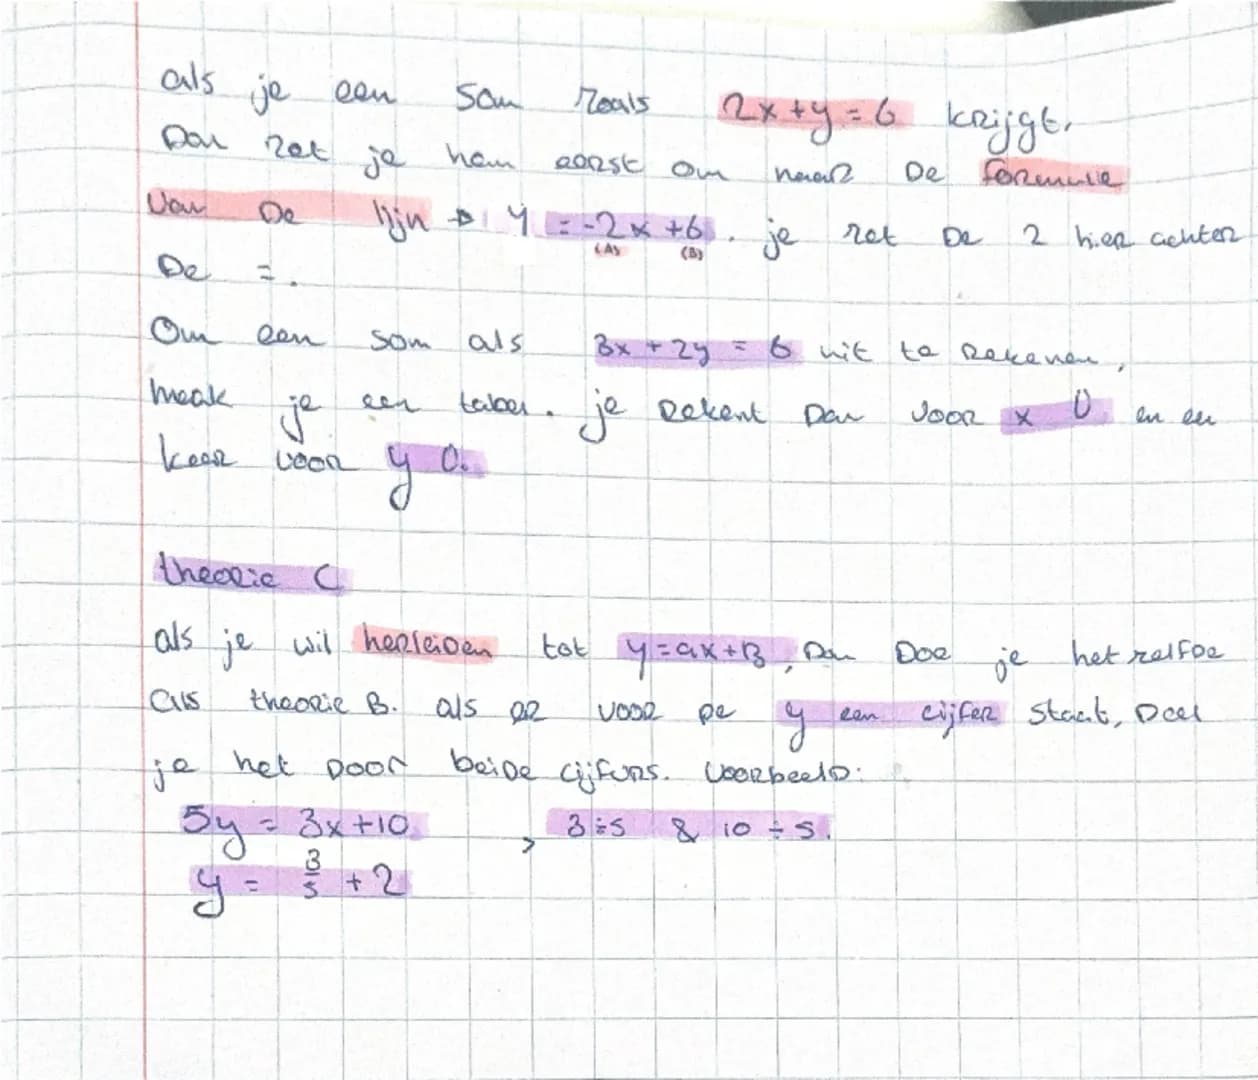 als je een som zoals 2x+y=6 krijgt.
Dan zet je hem eerst om naar De formule
Van De lijn → y = -2x +6. je zet De 2 hier achter
(A) (B)
De =.
Om een som als 3x + 2y = 6 uit te Rekenen,
maak je een tabel. je Rekent Dan voor x 0 en en
keer voor y 0.
theorie C
als je wil herleiden tot y=ax+B, Dan Doe je het zelfde
als theorie B. als er voor De y een cijfer staat, Deel
je het Door beide cijfers. Voorbeeld:
5y = 3x+10, 3÷5 & 10÷5.
y = 3/5 + 2